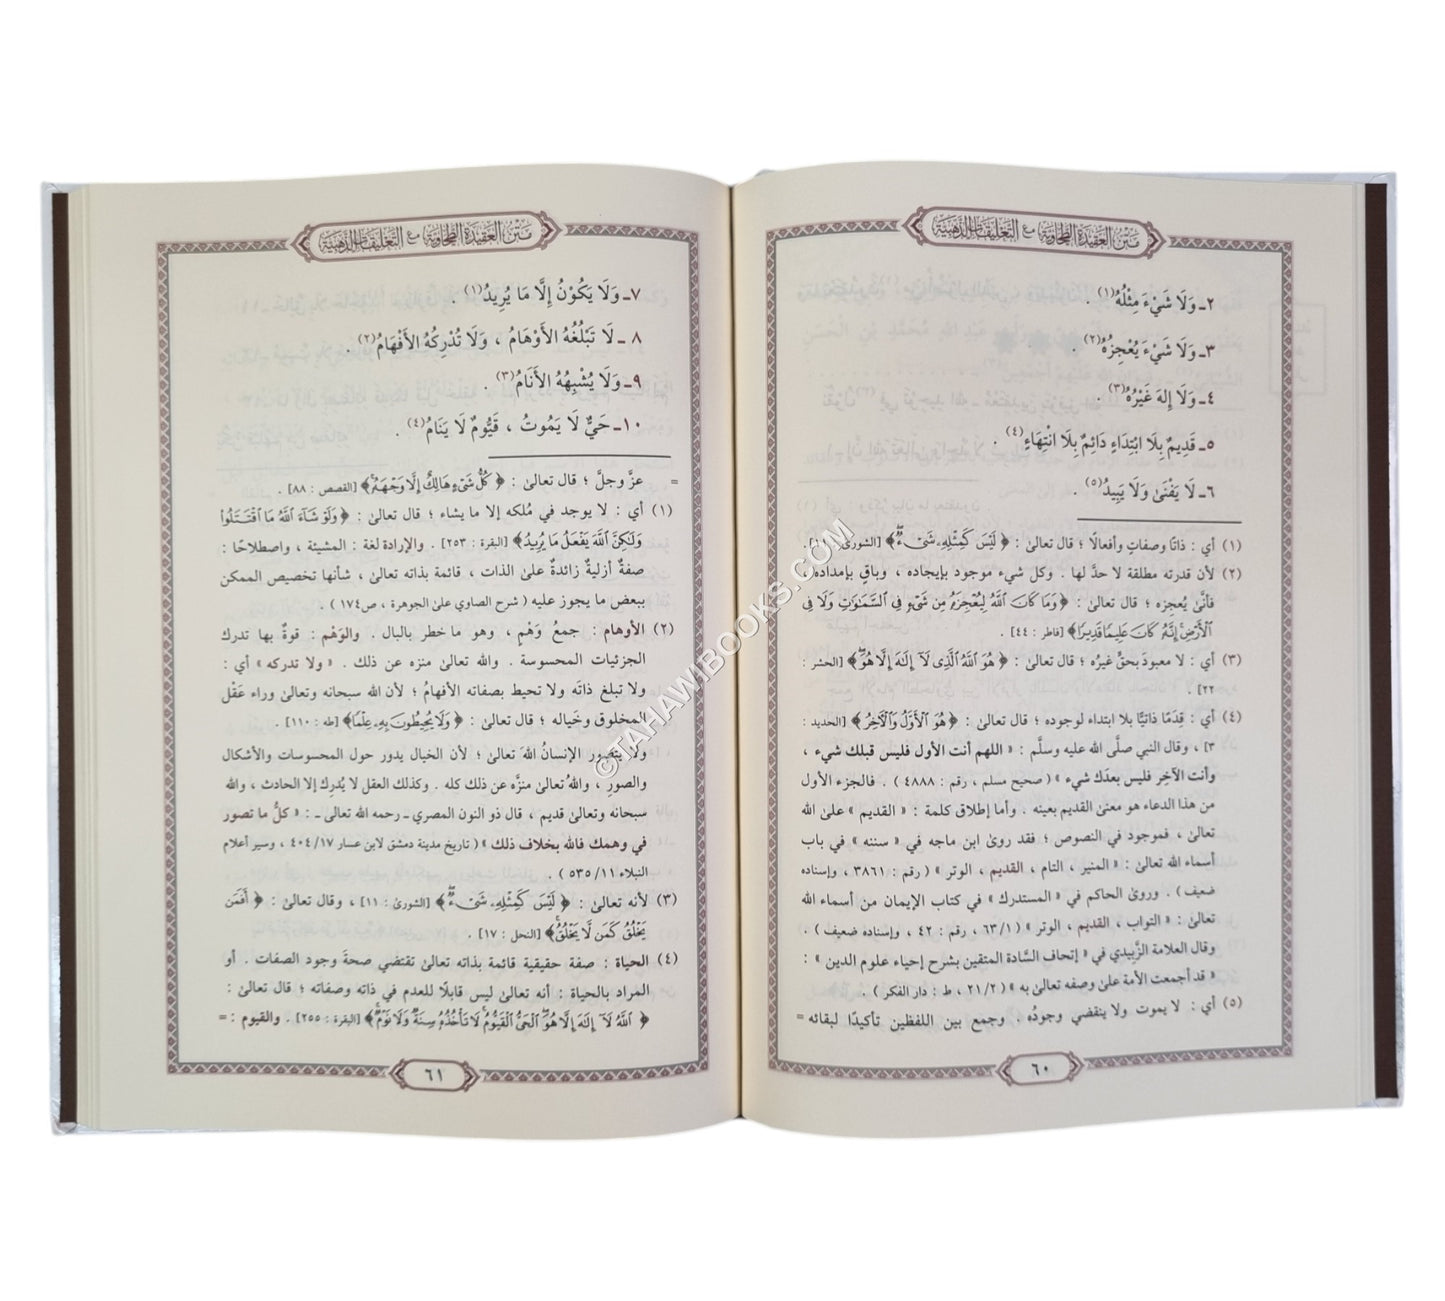 متن العقيدة الطحاوية مع التعليقات الذهبية
٢ـ وَلَا شَيْءَ مِثْلُهُ(١) .
٣ـ وَلَا شَيْءَ يُعْجِزُهُ(٢) .
٤ـ وَلَا إِلهَ غَيْرُهُ(٣) .
٥ـ قَدِيمٌ بِلَا ابْتِدَاءٍ دَائِمٌ بِلَا انْتِهَاءٍ(٤) .
٦ـ لَا يَفْنَىٰ وَلَا يَبِيدُ(٥) .
(١) أي : ذاتًا وصفاتٍ وأفعالًا ؛ قال تعالىٰ : ﴿ لَيْسَ كَمِثْلِهِۦ شَىْءٌۖ ﴾ [الشورىٰ : ١١].
(٢) لأن قدرته مطلقة لا حدَّ لها . وكل شيء موجود بإيجاده ، وباقٍ بإمداده ،
فأنَّىٰ يُعجزه ؛ قال تعالىٰ : ﴿ وَمَا كَانَ ٱللَّهُ لِيُعْجِزَهُۥ مِن شَىْءٍ فِى ٱلسَّمَٰوَٰتِ وَلَا فِى
ٱلْأَرْضِۚ إِنَّهُۥ كَانَ عَلِيمًا قَدِيرًا﴾ [فاطر : ٤٤] .
(٣) أي : لا معبودَ بحقٍّ غيرُه ؛ قال تعالىٰ : ﴿ هُوَ ٱللَّهُ ٱلَّذِى لَآ إِلَٰهَ إِلَّا هُوَۖ ﴾ [الحشر :
٢٢] .
(٤) أي : قِدَمًا ذاتيًّا بلا ابتداء لوجوده ؛ قال تعالىٰ : ﴿هُوَ ٱلْأَوَّلُ وَٱلْآخِرُ ﴾ [الحديد :
٣] ، وقال النبي صلَّى الله عليه وسلَّم : « اللهم أنت الأول فليس قبلك شيء ،
وأنت الآخِر فليس بعدَك شيء » (صحيح مسلم ، رقم : ٤٨٨٨) . فالجزء الأول
من هذا الدعاء هو معنىٰ القديم بعينه . وأما إطلاق كلمة : « القديم » علىٰ الله
تعالىٰ ، فموجود في النصوص ؛ فقد روىٰ ابن ماجه في « سننه » في باب
أسماء الله تعالىٰ : « المنير ، التام ، القديم ، الوتر » (رقم : ٣٨٦١ ، وإسناده
ضعيف) . وروىٰ الحاكم في « المستدرك » في كتاب الإيمان من أسماء الله
تعالىٰ : « التواب ، القديم ، الوتر » (٦٣/١ ، رقم : ٤٢ ، وإسناده ضعيف) .
وقال العلامة الزَّبِيدي في « إتحاف السَّادة المتقين بشرح إحياء علوم الدين » :
« قد أجمعت الأمة علىٰ وصفه تعالىٰ به » (٢١/٢ ، ط : دار الفكر) .
(٥) أي : لا يموت ولا ينقضي وجودُه . وجمع بين اللفظين تأكيدًا لبقائه =
٦٠
متن العقيدة الطحاوية مع التعليقات الذهبية
٧ـ وَلَا يَكُوْنُ إِلَّا مَا يُرِيدُ(١) .
٨ ـ لَا تَبْلُغُهُ الأَوْهَامُ ، وَلَا تُدْرِكُهُ الأَفْهَامُ(٢) .
٩ـ وَلَا يُشْبِهُهُ الأَنَامُ(٣) .
١٠ـ حَيٌّ لَا يَمُوتُ ، قَيُّومٌ لَا يَنَامُ(٤) .
= عزَّ وجلَّ ؛ قال تعالىٰ : ﴿ كُلُّ شَىْءٍ هَالِكٌ إِلَّا وَجْهَهُۥ﴾ [القصص : ٨٨] .
(١) أي : لا يوجد في مُلكه إلا ما يشاء ؛ قال تعالىٰ : ﴿وَلَوْ شَآءَ ٱللَّهُ مَا ٱقْتَتَلُوا۟
وَلَٰكِنَّ ٱللَّهَ يَفْعَلُ مَا يُرِيدُ﴾ [البقرة : ٢٥٣] . والإرادة لغة : المشيئة ، واصطلاحًا :
صفةٌ أزليةٌ زائدةٌ علىٰ الذات ، قائمة بذاته تعالىٰ ، شأنها تخصيص الممكن
ببعض ما يجوز عليه (شرح الصاوي علىٰ الجوهرة ، ص١٧٤) .
(٢) الأوهام : جمعُ وَهْم ، وهو ما خطر بالبال . والوَهْم : قوةٌ بها تدرك
الجزئيات المحسوسة . والله تعالىٰ منزه عن ذلك . « ولا تدركه » أي :
ولا تبلغ ذاتَه ولا تحيط بصفاته الأفهامُ ؛ لأن الله سبحانه وتعالىٰ وراء عَقْل
المخلوق وخَياله ؛ قال تعالىٰ : ﴿وَلَا يُحِيطُونَ بِهِۦ عِلْمًا﴾ [طه : ١١٠] .
ولا يتصور الإنسانُ اللهَ تعالىٰ ؛ لأن الخيال يدور حول المحسوسات والأشكال
والصور ، واللهُ تعالىٰ منزَّه عن ذلك كله . وكذلك العقل لا يُدرِك إلا الحادث ، والله
سبحانه وتعالىٰ قديم ، قال ذو النون المصري ـ رحمه الله تعالىٰ ـ : « كلُّ ما تصور
في وهمك فالله بخلاف ذلك » (تاريخ مدينة دمشق لابن عسار ٤٠٤/١٧ ، وسير أعلام
النبلاء ٥٣٥/١١) .
(٣) لأنه تعالىٰ : ﴿ لَيْسَ كَمِثْلِهِۦ شَىْءٌۖ﴾ [الشورىٰ : ١١] ، وقال تعالىٰ : ﴿ أَفَمَن
يَخْلُقُ كَمَن لَّا يَخْلُقُ﴾ [النحل : ١٧] .
(٤) الحياة : صفة حقيقية قائمة بذاته تعالىٰ تقتضي صحةَ وجود الصفات . أو
المراد بالحياة : أنه تعالىٰ ليس قابلًا للعدم في ذاته وصفاته ؛ قال تعالىٰ :
﴿ ٱللَّهُ لَآ إِلَٰهَ إِلَّا هُوَ ٱلْحَىُّ ٱلْقَيُّومُۚ لَا تَأْخُذُهُۥ سِنَةٌ وَلَا نَوْمٌ﴾ [البقرة : ٢٥٥] . والقيوم : =
٦١
©TAHAWIBOOKS.COM